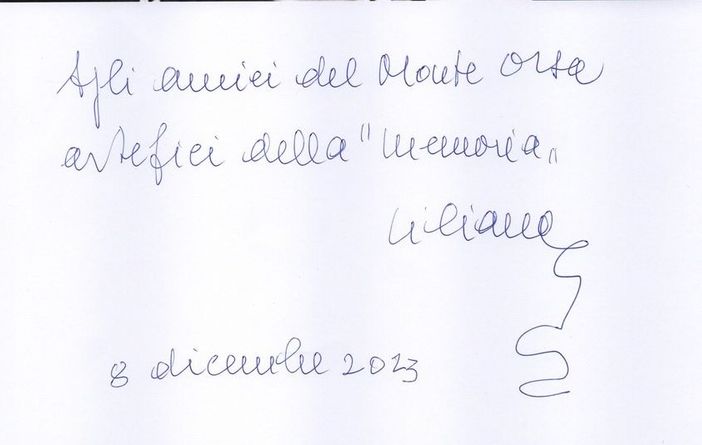 Agli amici del Monte Orsa
artefici della "memoria"
Liliana
8 dicembre 2013